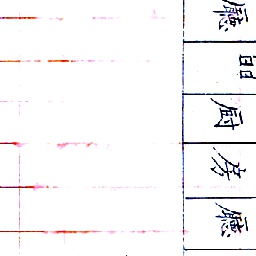 廳
厨
房
廳